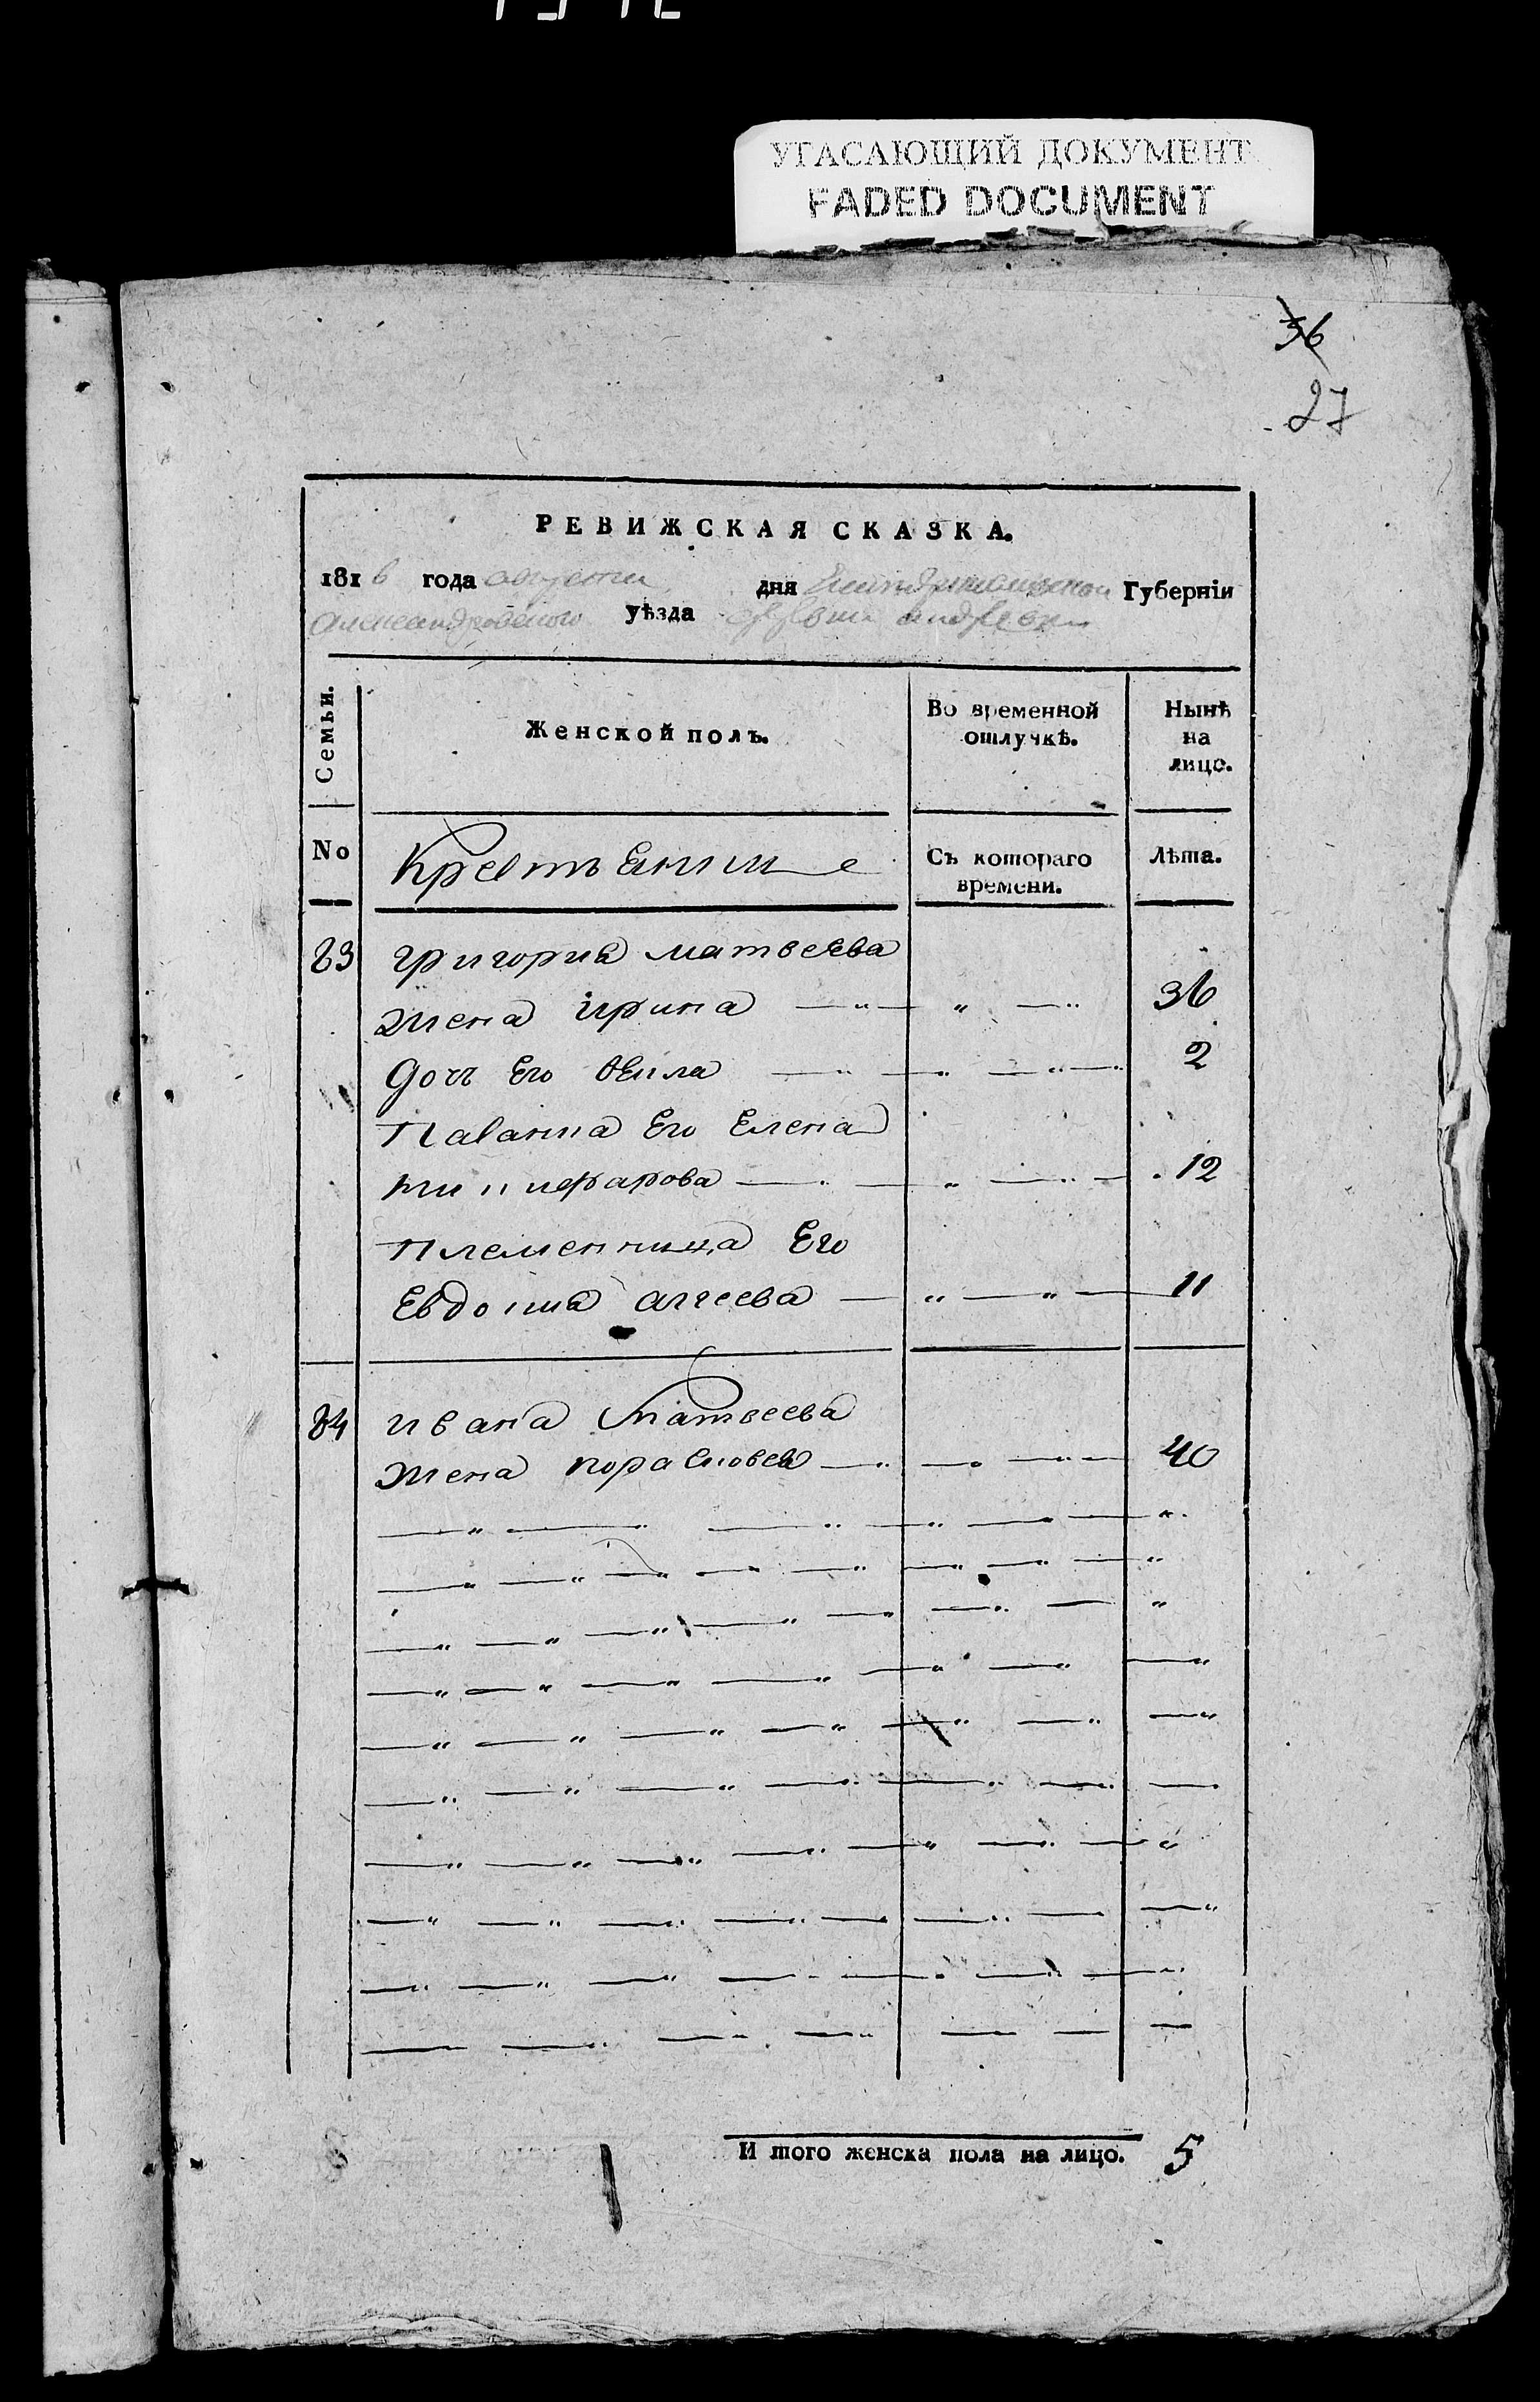 УГАСАЮЩИЙ ДОКУМЕНТ
FADED DOCUMENT
36
27
РЕВИЖСКАЯ СКАЗКА.
1816 года августа дня Екатеринославской Губерніи
Александровского уѣзда деревни андреевки
Семьи.
Женской полъ.
Во временной
отлучкѣ.
Нынѣ
на
лицо.
No
Крестьянин е
Съ котораго
времени.
Лѣта.
83 григориа матвеева
жена ирина 36
дочь Его 2
Его Елена
12
племенница Его
Евдокиа аггеева 11
84 ивана Матвеева
жена 40
И того женска пола на лицо. 5